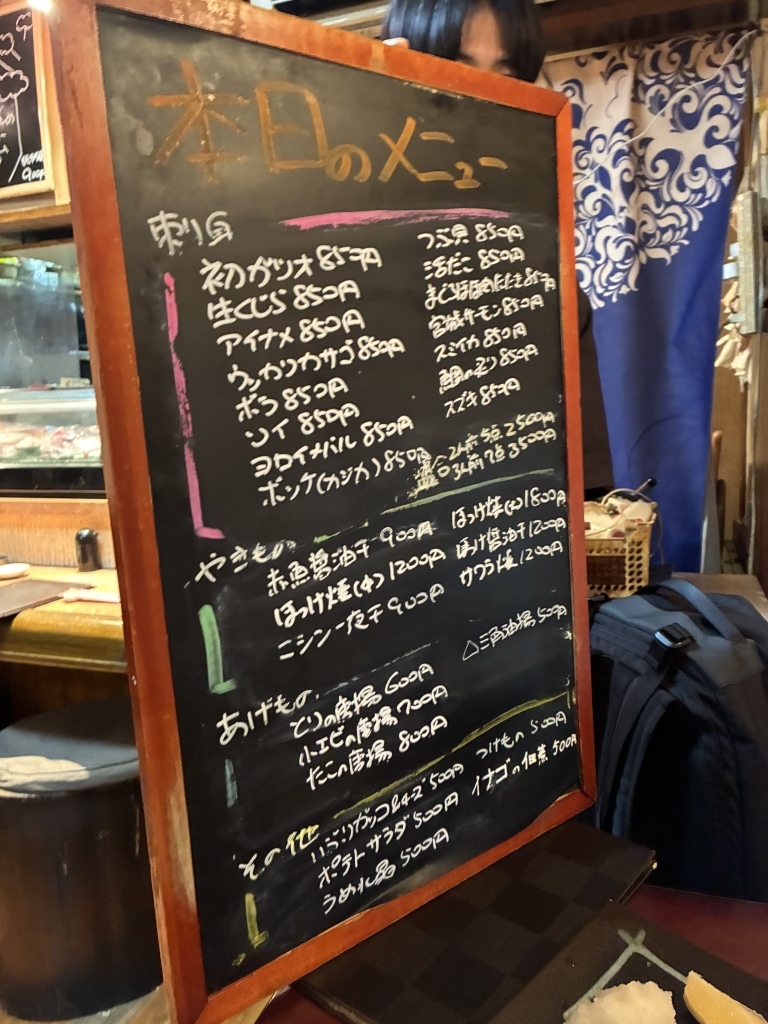 本日のメニュー
刺り身
初ガツオ 850円
生くじら 850円
アイナメ 850円
ウッカリカサゴ 850円
ボラ 850円
ソイ 850円
ヨロイメバル 850円
ボッケ(カジカ) 850円
つぶ貝 850円
活だこ 850円
まぐろほほ肉たたき 850円
宮城サーモン 850円
スミイカ 850円
鯛の炙り 850円
スズキ 850円
盛合 2人前 5点 2500円
3人前 7点 3500円
やきもの
赤魚醤油干 900円
ほっけ焼(中) 1200円
ニシン一夜干 900円
ほっけ焼(大) 1800円
ほっけ醤油干 1200円
サワラ焼 1200円
あげもの
とりの唐揚 600円
小エビの唐揚 700円
たこの唐揚 800円
△三角油揚 500円
その他
いぶりガッコ&チーズ 500円
ポテトサラダ 500円
うめ水晶 500円
つけもの 500円
イナゴの佃煮 500円
900円